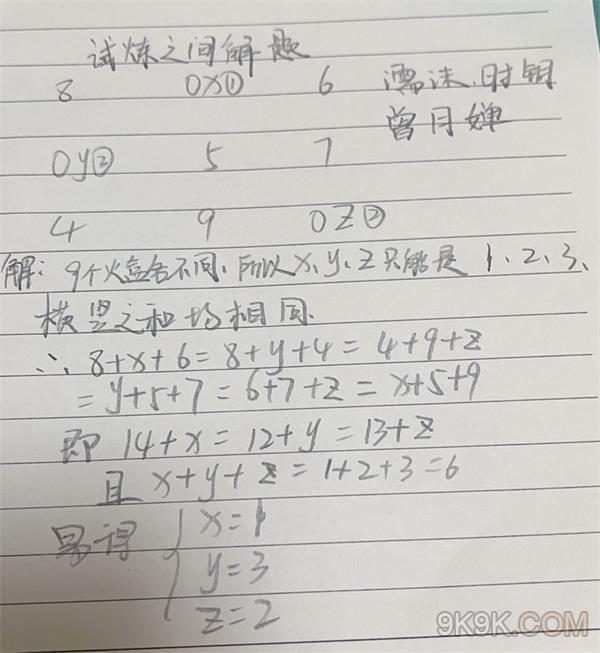 试炼之间解题
8 0X① 6 濡沫、时钥
曾月婵
0y② 5 7
4 9 0Z②
解：9个火盒各不同，所以X、y、Z只能是1、2、3、
横竖之和均相同.
∴ 8+x+6=8+y+4=4+9+z
=y+5+7=6+7+z=x+5+9
即 14+x=12+y=13+z
且 x+y+z=1+2+3=6
易得 x=1
y=3
z=2
9K9K.COM